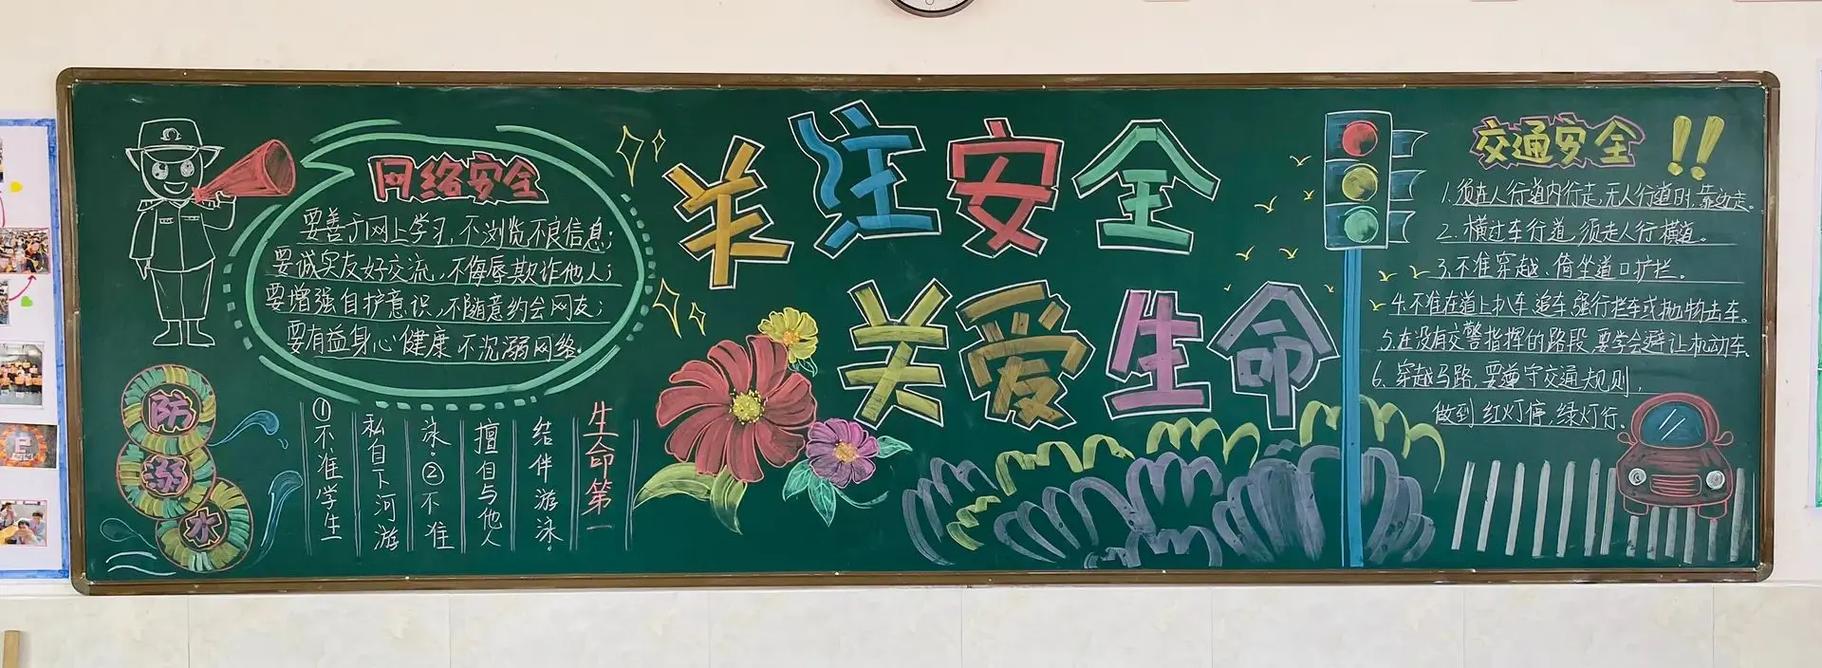 关注安全
关爱生命
网络安全
要善于网上学习,不浏览不良信息;
要诚实友好交流,不侮辱欺诈他人;
要增强自护意识,不随意约会网友;
要有益身心健康 不沉溺网络.
防溺水
①不准学生
私自下河游
泳.②不准
擅自与他人
结伴游泳.
生命第一
交通安全!!
1.须在人行道内行走,无人行道时,靠边走。
2.横过车行道,须走人行横道。
3.不准穿越、倚坐道口护拦。
4.不准在道上扒车、追车、强行拦车或抛物击车。
5.在没有交警指挥的路段,要学会避让机动车,
6.穿越马路,要遵守交通规则,
做到红灯停,绿灯行。